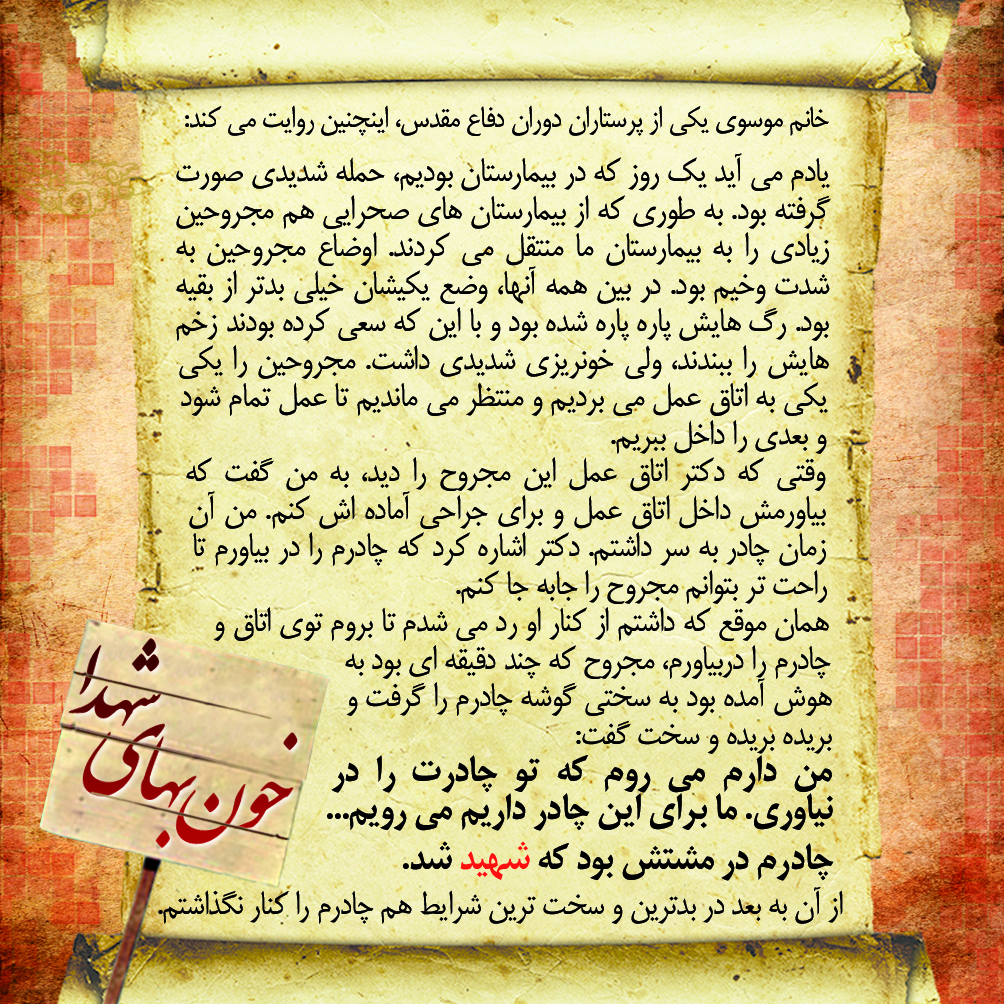 خانم موسوی یکی از پرستاران دوران دفاع مقدس، اینچنین روایت می کند:
یادم می آید یک روز که در بیمارستان بودیم، حمله شدیدی صورت
گرفته بود. به طوری که از بیمارستان های صحرایی هم مجروحین
زیادی را به بیمارستان ما منتقل می کردند. اوضاع مجروحین به
شدت وخیم بود. در بین همه آنها، وضع یکیشان خیلی بدتر از بقیه
بود. رگ هایش پاره پاره شده بود و با این که سعی کرده بودند زخم
هایش را ببندند، ولی خونریزی شدیدی داشت. مجروحین را یکی
یکی به اتاق عمل می بردیم و منتظر می ماندیم تا عمل تمام شود
و بعدی را داخل ببریم.
وقتی که دکتر اتاق عمل این مجروح را دید، به من گفت که
بیاورمش داخل اتاق عمل و برای جراحی آماده اش کنم. من آن
زمان چادر به سر داشتم. دکتر اشاره کرد که چادرم را در بیاورم تا
راحت تر بتوانم مجروح را جابه جا کنم.
همان موقع که داشتم از کنار او رد می شدم تا بروم توی اتاق و
چادرم را دربیاورم، مجروح که چند دقیقه ای بود به
هوش آمده بود به سختی گوشه چادرم را گرفت و
بریده بریده و سخت گفت:
من دارم می روم که تو چادرت را در
نیاوری. ما برای این چادر داریم می رویم...
چادرم در مشتش بود که شهید شد.
از آن به بعد در بدترین و سخت ترین شرایط هم چادرم را کنار نگذاشتم.
خون بهای
شهدا